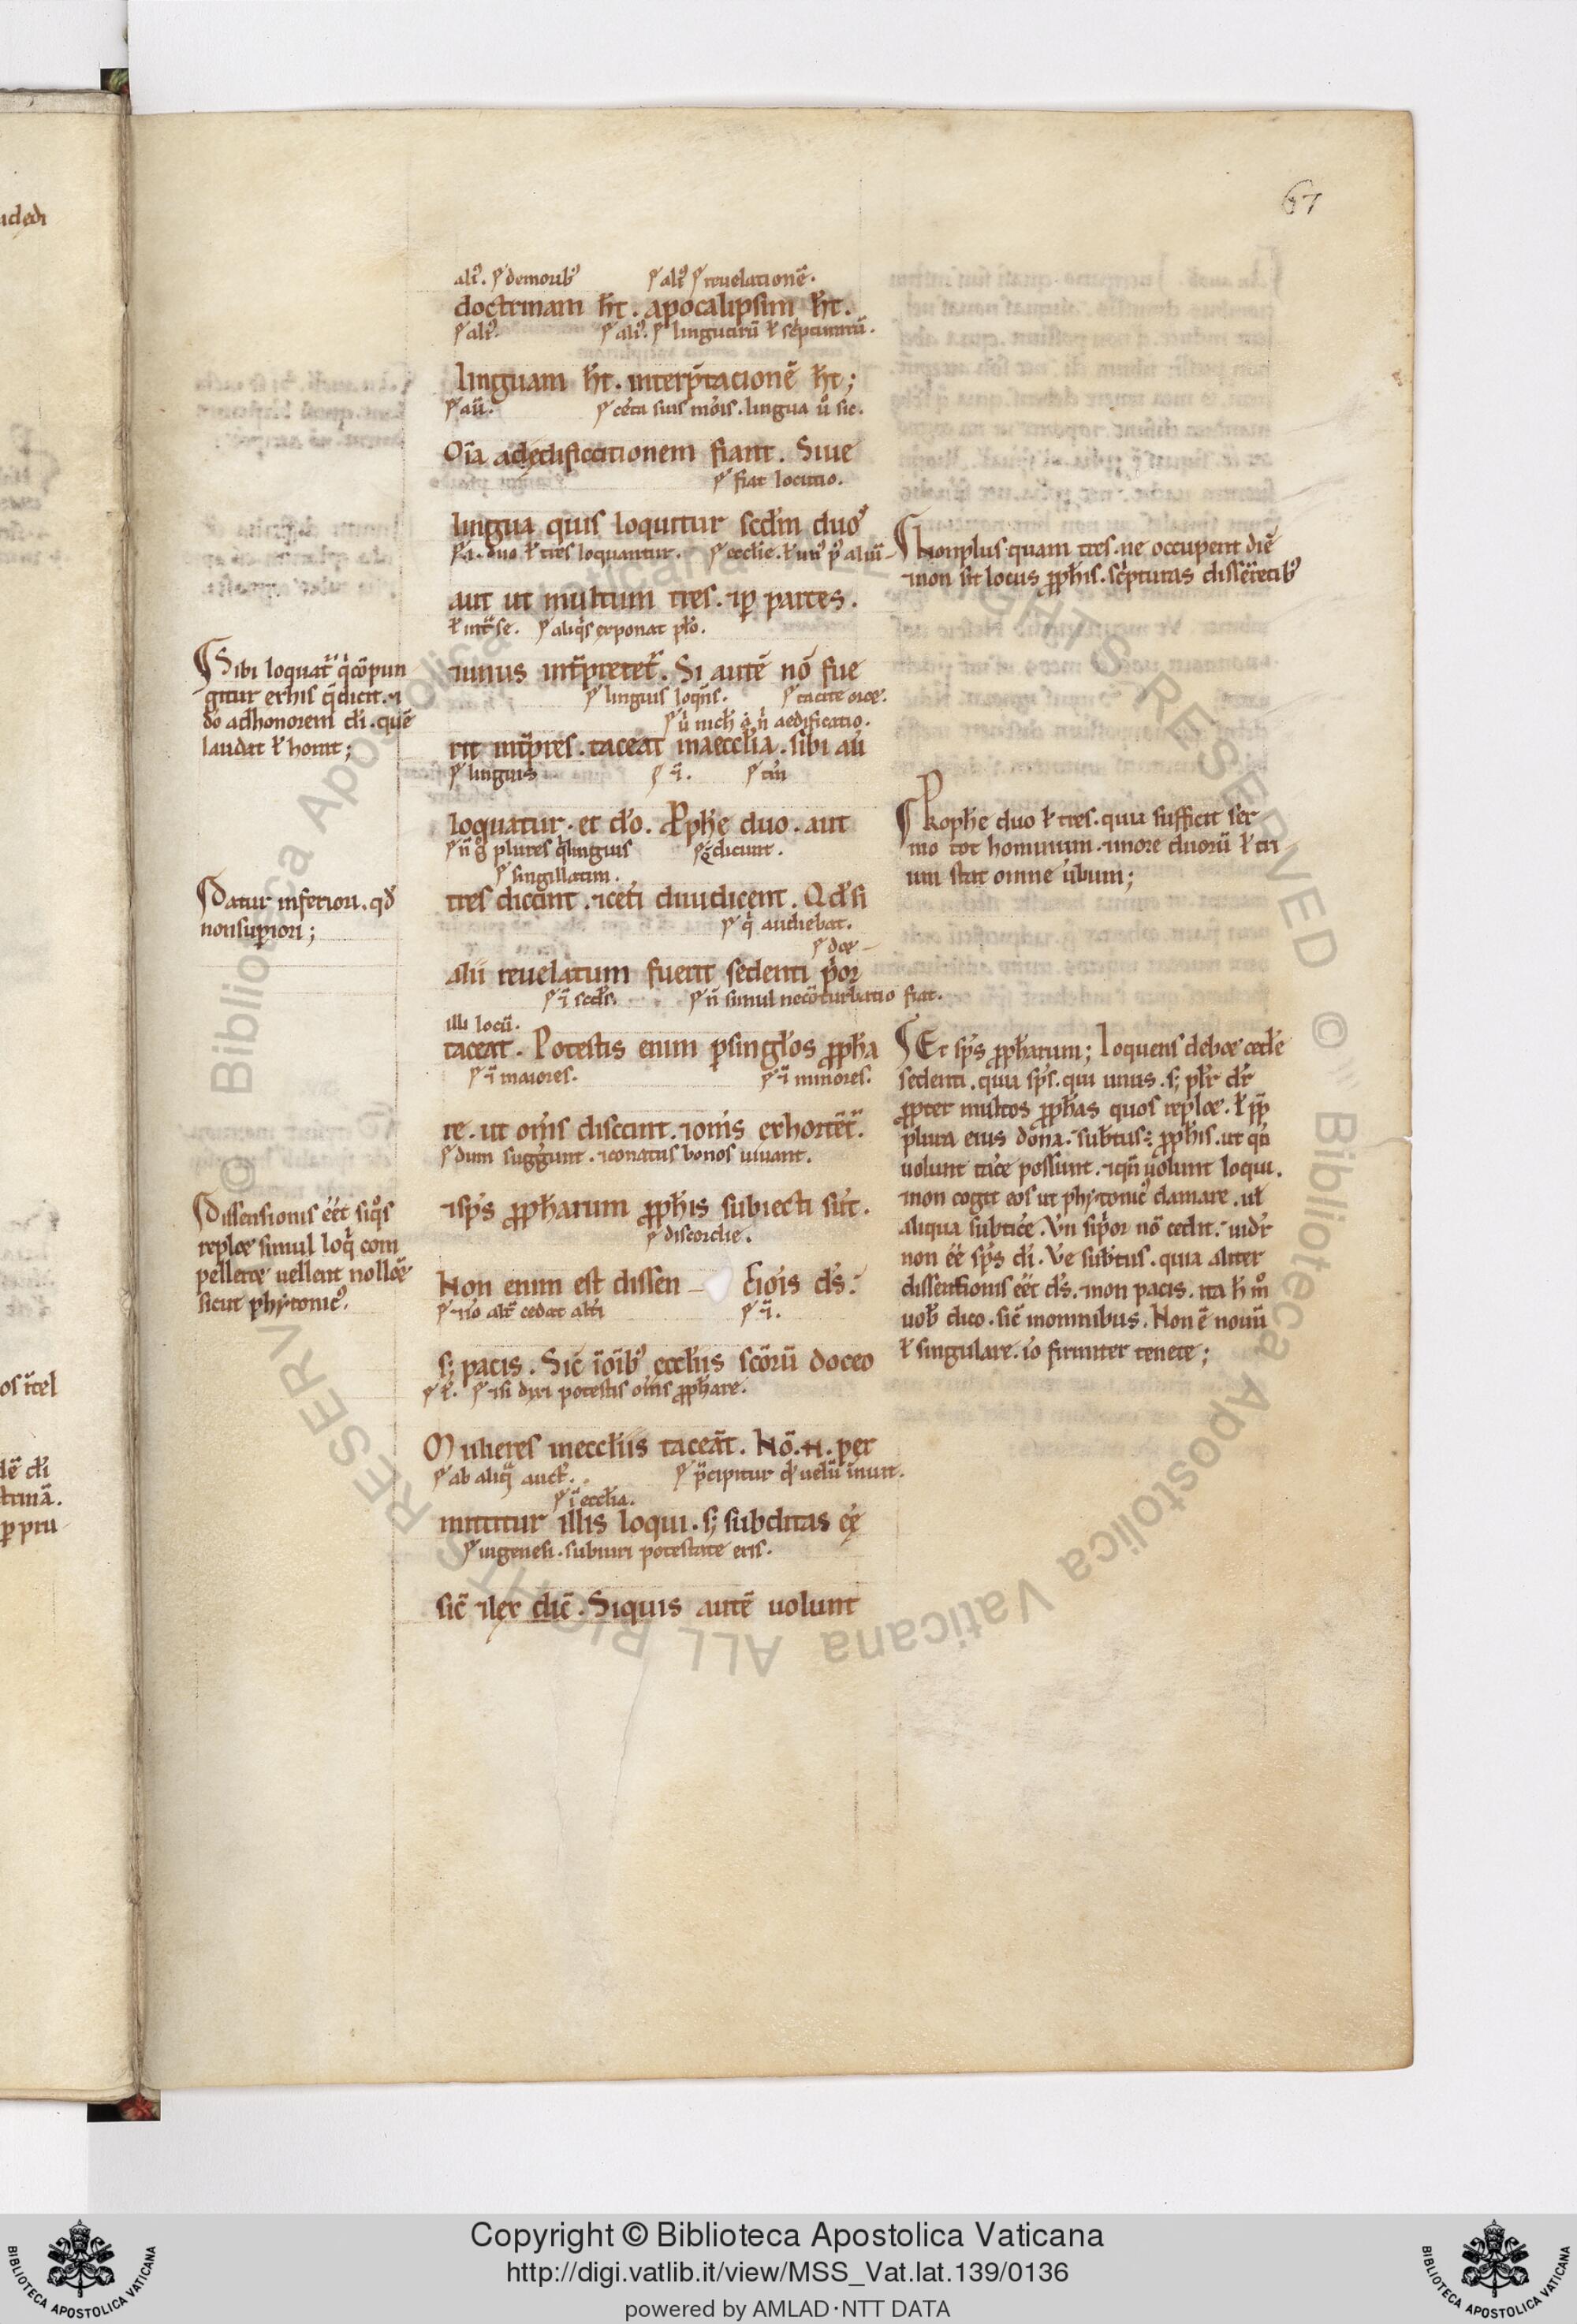 67
alił. ꝑ demorib᷒ ꝑ alił ꝑ reuelationē.
doctrinam h̄t. apocalipsim h̄t.
ꝑ ali᷒. ꝑ ali᷒. ꝑ linguarū ł sc̄pturarū.
linguam h̄t. interp̄tacionē h̄t;
ꝑ aū. ꝑ cet̄a suis mōis. lingua ū sic.
Oīa adędificationem fiant. Siue
ꝑ fiat locutio.
lingua quis loquitur scđm duo᷒
duo ł tres loquantur. ꝑ ecclīe. ł un᷒ p᷒ aliū
aut ut multum tres. ⁊ ꝑ partes.
ł int̄ se. ꝑ aliq̄s exponat pło.
⁊unus int̄pretet᷑. Si autē nō fue
ꝑ linguis loq̄ns. ꝑ tacite oret.
aedificatio.
rit int̄pres. taceat inaecclīa. sibi aū
ꝑ linguis ꝑ ⁊̄. ꝑ tm̄
loquatur. et dō. Pph̄e duo. aut
plures q̄ linguis dicunt.
ꝑ singillatim.
tres dicant. ⁊cet̄i diiudicent. Qđ si
ꝑ q̄ audiebat.
ꝑ doc
alii reuelatum fuerit sedenti p̄or
ꝑ n̄ simul ne cōturbatio fiat.
illi locū.
taceat. Potestis enim ꝑsingłos ꝓph̄a
ꝑ ⁊̄ maiores. ꝑ ⁊̄ minores.
re. ut om̄s discant. ⁊om̄s exhortēt᷑.
ꝑ dum sugḡunt. ⁊conatus bonos iuuant.
⁊sp̄s ꝓph̄arum ꝓph̄is subiecti sūt.
ꝑ discordie.
Non enim est dissen — sioīs ds̄.
ꝑ ⁊iō alt̄ cedat alt̄i ꝑ ⁊̄.
s; pacis. Sic̄ ī oīb᷒ ecclīis scōrū doceo
potestis om̄s ꝓph̄are.
Mulieres inecclīis taceāt. Nō. N. per
ꝑ ab aliq̄ auct̄. ꝑ p̄cipitur
ꝑ ī ecclīa.
mittitur illis loqui. s; subditas ēē
ꝑ ingenesi. subuiri potestate eris.
sic̄ ⁊lex dic̄. Siquis autē uolunt
Sibi loquat᷑ q̄ cōpun
gitur exhis q̄ dicit. ⁊
dō adhonorem dī. quē
laudat ł horret;
Datur inferiori. qđ
nonsuꝑiori;
Dissensionis ēēt siq̄s
replet simul loq̄ com
pelleret uellent nollēt
sicut phytonic᷒.
Nonplus quam tres. ne occupent diē
⁊non sit locus ꝓph̄is. sc̄pturas disserētib᷒
Proph̄e duo ł tres. quia sufficit ser
mo tot hominum. ⁊inore duorū ł tri
um stat omne ūbum;
Et sp̄s ꝓph̄arum; loquens debet cedē
sedenti. quia sp̄s. qui unus. s; pl̄r dr̄
ꝓpter multos ꝓph̄as quos replet. ł ꝓp̄
plura eius dona. subditus ē ꝓph̄is. ut qn̄
uolunt tacē possunt. ⁊qn̄ uolunt loqui.
⁊non cogit eos ut phytonic᷒ clamare. uł
aliqua subticē. Vn̄ sip̄or nō cedit. uidr̄
non ēē sp̄s dī. Ve subditus. quia aliter
dissensionis ēēt ds̄. ⁊non pacis. ita h̄ m̊
uob̄ dico. sic̄ inomnibus. Non ē nouū
ł singulare. iō firmiter tenete;
Copyright © Biblioteca Apostolica Vaticana
http://digi.vatlib.it/view/MSS_Vat.lat.139/0136
powered by AMLAD·NTT DATA
BIBLIOTECA APOSTOLICA VATICANA
BIBLIOTECA APOSTOLICA VATICANA
© Biblioteca Apostolica Vaticana ALL RIGHTS RESERVED
© Biblioteca Apostolica Vaticana ALL RIGHTS RESERVED